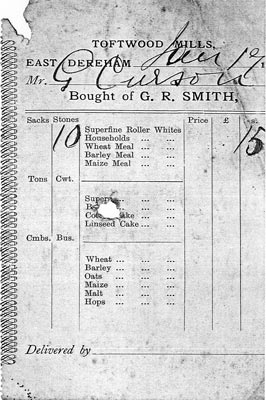 TOFTWOOD MILLS,
EAST DEREHAM
Mr. G Cursons
Bought of G. R. SMITH,
Sacks Stones Price £ s.
10 Superfine Roller Whites 15
Households ... ...
Wheat Meal ... ...
Barley Meal ... ...
Maize Meal ... ...
Tons Cwt.
Cake ...
Linseed Cake ... ...
Cmbs. Bus.
Wheat ... ... ...
Barley ... ... ...
Oats ... ...
Maize ... ... ...
Malt ... ... ...
Hops ... ... ...
Delivered by